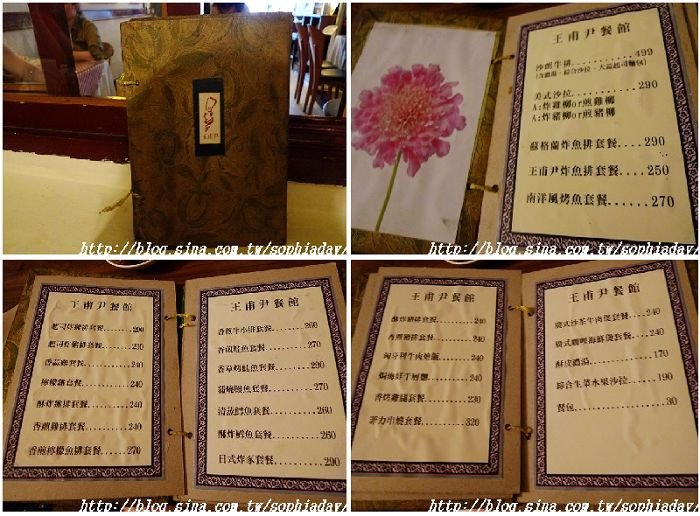 王甫尹
http://blog.sina.com.tw/sophiaday/
王甫尹餐館
沙朗牛排............499
(含濃湯、綜合沙拉、大蒜起司麵包)
美式沙拉............290
A:炸雞柳or煎雞柳
A:炸豬柳or煎豬柳
蘇格蘭炸魚排套餐....290
王甫尹炸魚排套餐....250
南洋風烤魚套餐......270
http://blog.sina.com.tw/sophiaday/
王甫尹餐館
起司炸雞排套餐......290
起司炸豬排套餐......290
香蒜雞套餐..........240
檸檬雞套餐..........240
酥炸雞排套餐........240
香煎雞排套餐........240
香煎檸檬魚排套餐....270
王甫尹餐館
香煎牛小排套餐......260
香煎鮭魚套餐........270
香草烤鮭魚套餐......290
蒲燒鰻魚套餐........270
清蒸鱈魚套餐........260
酥炸鱈魚套餐........260
日式炸豬套餐........290
http://blog.sina.com.tw/sophiaday/
王甫尹餐館
酥炸豬排套餐........240
香煎豬排套餐........240
匈牙利牛肉燴飯......240
焗海鮮千層麵........240
香烤雞腿套餐........230
菲力串燒套餐........320
王甫尹餐館
廣式沙茶牛肉煲套餐..240
廣式咖哩海鮮煲套餐..240
酥皮濃湯............170
綜合生菜水果沙拉....190
餐包................30
http://blog.sina.com.tw/sophiaday/